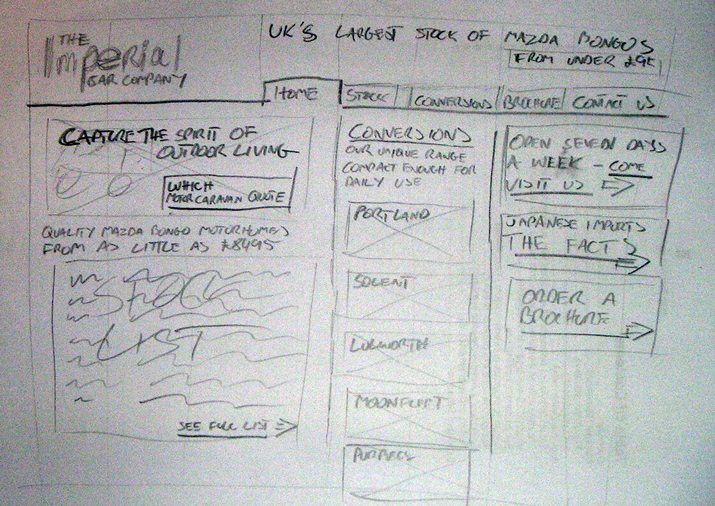 THE
Imperial
CAR COMPANY
UK'S LARGEST STOCK OF MAZDA BONGOS
FROM UNDER £9K
HOME
STOCK
CONVERSIONS
BROCHURE
CONTACT US
CAPTURE THE SPIRIT OF
OUTDOOR LIVING
WHICH
MOTORCARAVAN QUOTE
QUALITY MAZDA BONGO MOTORHOMES
FROM AS LITTLE AS £8495
STOCK
LIST
SEE FULL LIST
CONVERSIONS
OUR UNIQUE RANGE
COMPACT ENOUGH FOR
DAILY USE
PORTLAND
SOLENT
LULWORTH
MOONFLEET
OPEN SEVEN DAYS
A WEEK - COME
VISIT US
JAPANESE IMPORTS
THE FACTS
ORDER A
BROCHURE